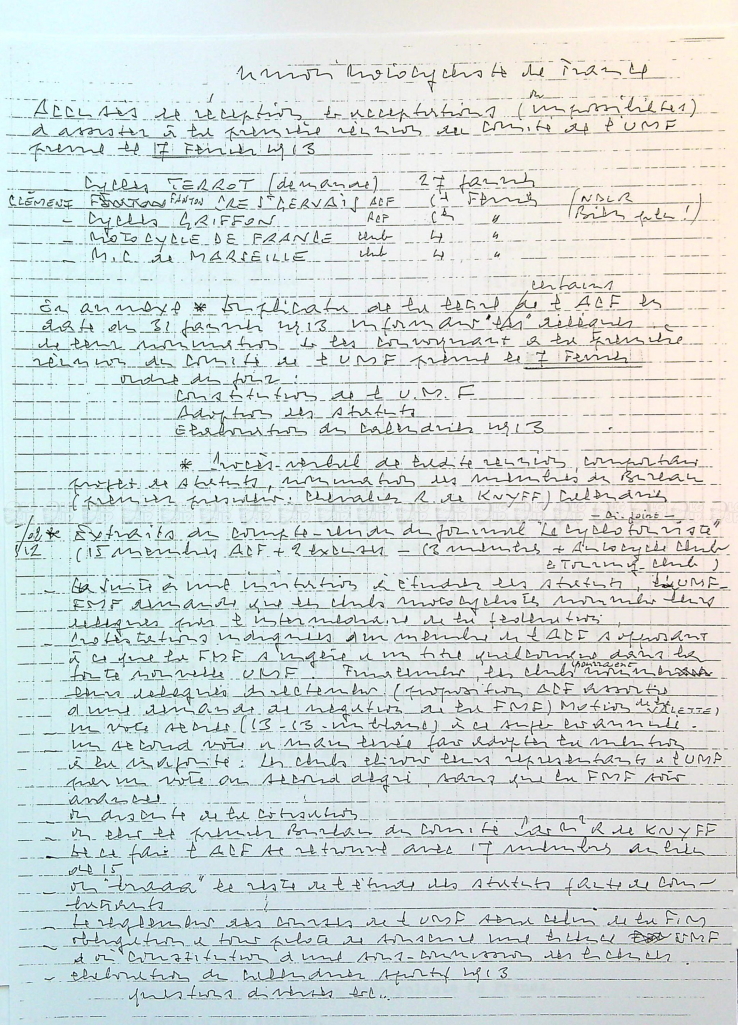 Union Motocycliste de France
Accusés de réception et acceptations (ou impossibilités)
d'assister à la première réunion du Comité de l'UMF
prévue le 17 Février 1913
- Cycles TERROT (demande) 27 janvier
CLÉMENT PRES St GERVAIS ACF Février (NDLR
- Cycles GRIFFON ACF " Bien )
- MOTOCYCLE DE FRANCE club 4 "
- M.C. de MARSEILLE club 4 "
certains
En annexe * Duplicata de la lettre de l'ACF en
date du 31 janvier 1913 informant "les" délégués
de leur nomination et les convoquant à la première
réunion du Comité de l'UMF prévue le 7 Février
ordre du jour :
Constitution de l'U.M.F
Adoption des statuts
Elaboration du Calendrier 1913
* Procès-verbal de ladite réunion, comportant
projet de statuts, nomination des membres du Bureau
(premier président : Chevalier R. de KNYFF) Calendrier
- Ci-joint -
* Extraits du compte-rendu du journal "Le cyclotouriste"
(15 membres ACF + 2 excusés - 13 membres + Autocycle Club
et Touring-club)
- Suite à une invitation à étudier les statuts, UMF
FMF demande que les clubs motocyclistes nomment leurs
délégués par l'intermédiaire de la fédération.
- Protestations indignées d'un membre de l'ACF s'opposant
à ce que la FMF s'ingère à un titre quelconque dans la
toute nouvelle UMF. Finalement, les clubs pourraient
leurs délégués directement (proposition ACF assortie
d'une demande de négation de la FMF) Motion de la VALETTE)
un vote secret (13-13- un blanc) à ce sujet est annulé.
un second vote à main levée fait adopter la motion
à la majorité. Les clubs éliront leurs représentants à l'UMF
par un vote au second degré, sans que la FMF soit
avancée
- on discute de la cotisation
- on élit le premier Bureau du Comité R de KNYFF
de ce fait l'ACF se retrouve avec 17 membres au lieu
de 15
- on "brada" le reste de l'étude des statuts faute de com-
battants
- Le règlement des courses de l'UMF sera celui de la FIM
- obligation à tout pilote de souscrire une licence UMF
et on Constitution d'une sous-commission des licences.
- élaboration du calendrier sportif 1913
questions diverses etc..